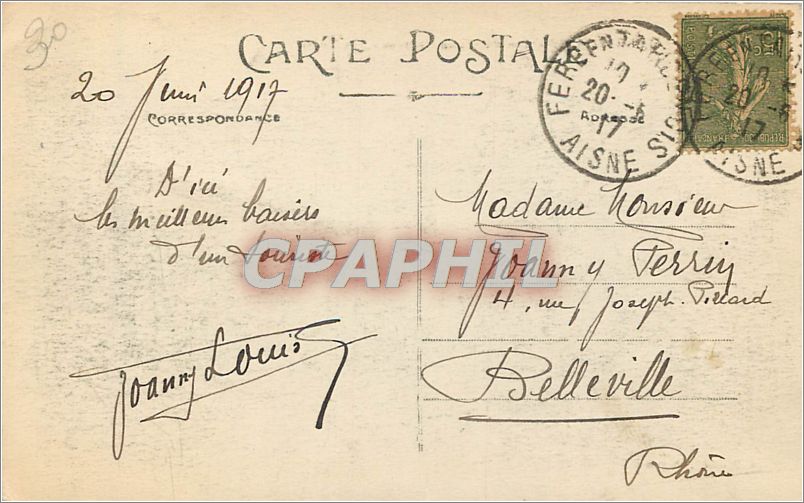 30
CARTE POSTALE
20 Juin 1917
CORRESPONDANCE
D'ici
les meilleurs baisers
d'un touriste
Joanny Louis
FERE EN TARDENOIS
20 -6
17
AISNE
ADRESSE
Madame Monsieur
Joanny Perrin
4, rue Joseph
Belleville
Rhône
CPAPHIL